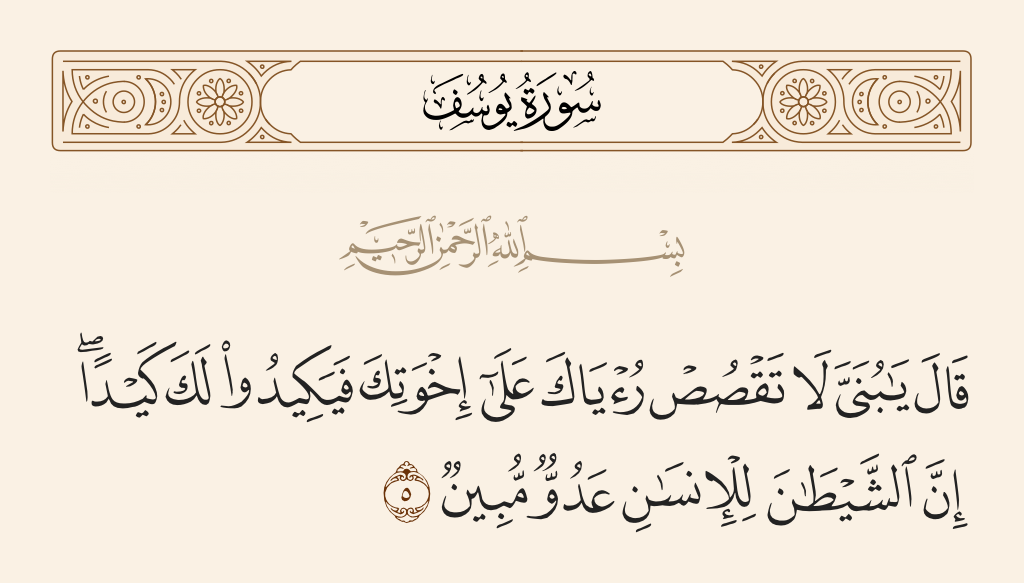 سُورَةُ يُوسُفَ
بِسْمِ ٱللَّهِ ٱلرَّحْمَٰنِ ٱلرَّحِيمِ
قَالَ يَٰبُنَىَّ لَا تَقْصُصْ رُءْيَاكَ عَلَىٰٓ إِخْوَتِكَ فَيَكِيدُوا۟ لَكَ كَيْدًا ۖ
إِنَّ ٱلشَّيْطَٰنَ لِلْإِنسَٰنِ عَدُوٌّ مُّبِينٌ ٥